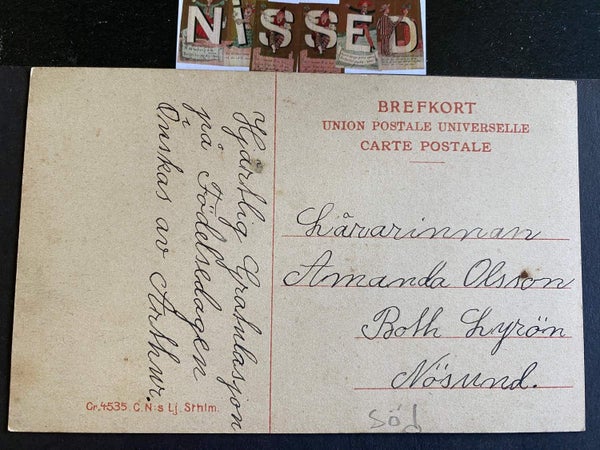 NISSED
BREFKORT
UNION POSTALE UNIVERSELLE
CARTE POSTALE
Hjärtlig Gratulasjon
på Födelsedagen
Önskas av Arthur.
Lärarinnan
Amanda Olsson
Both Lyrön
Nösund.
Gr. 4535. C. N:s Lj. Sthlm.
söd